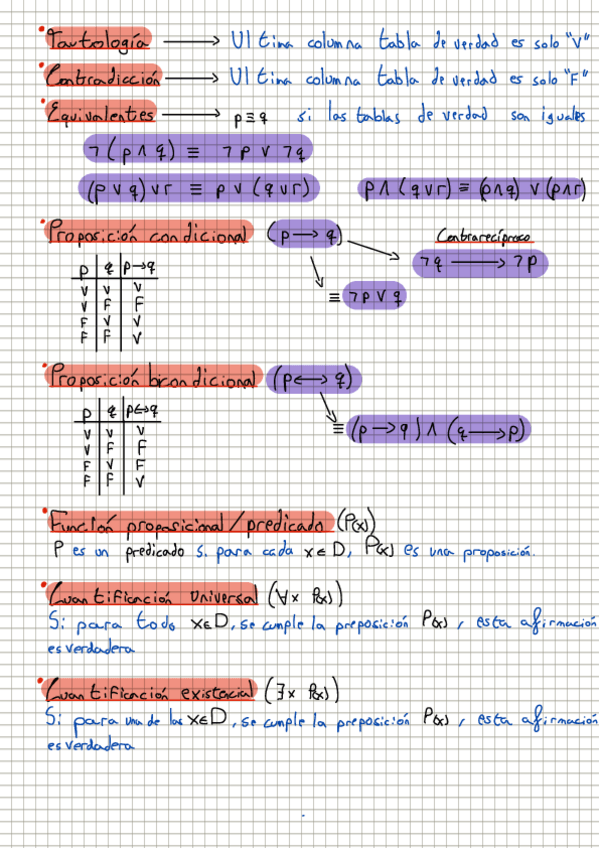 Tautología → Ultima columna tabla de verdad es solo "V"
Contradicción → Ultima columna tabla de verdad es solo "F"
Equivalentes → p≡q si las tablas de verdad son iguales
¬(p∧q) ≡ ¬p∨¬q
(p∨q)∨r ≡ p∨(q∨r) p∧(q∨r) ≡ (p∧q)∨(p∧r)
Proposición condicional (p→q) Contrarecíproco
¬q → ¬p
≡ ¬p∨q
p q p→q
V V V
V F F
F V V
F F V
Proposición bicondicional (p↔q)
≡ (p→q)∧(q→p)
p q p↔q
V V V
V F F
F V F
F F V
Función proposicional/predicado (P(x))
P es un predicado si para cada x∈D, P(x) es una proposición.
Cuantificación Universal (∀x P(x))
Si para todo x∈D, se cumple la preposición P(x), esta afirmación
es verdadera
Cuantificación existecial (∃x P(x))
Si para una de las x∈D, se cumple la preposición P(x), esta afirmación
es verdadera